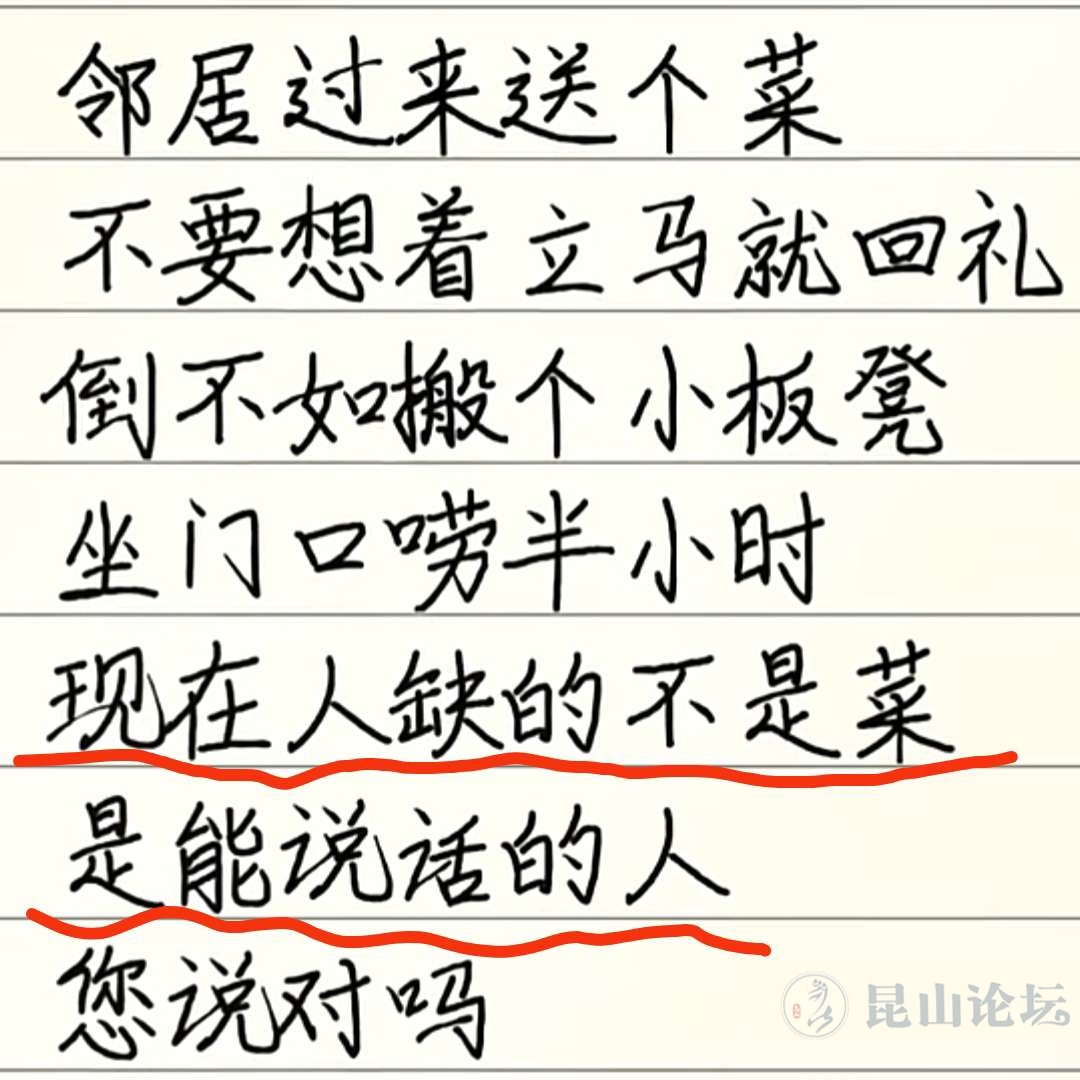 邻居过来送个菜
不要想着立马就回礼
倒不如搬个小板凳
坐门口唠半小时
现在人缺的不是菜
是能说话的人
您说对吗
昆山论坛